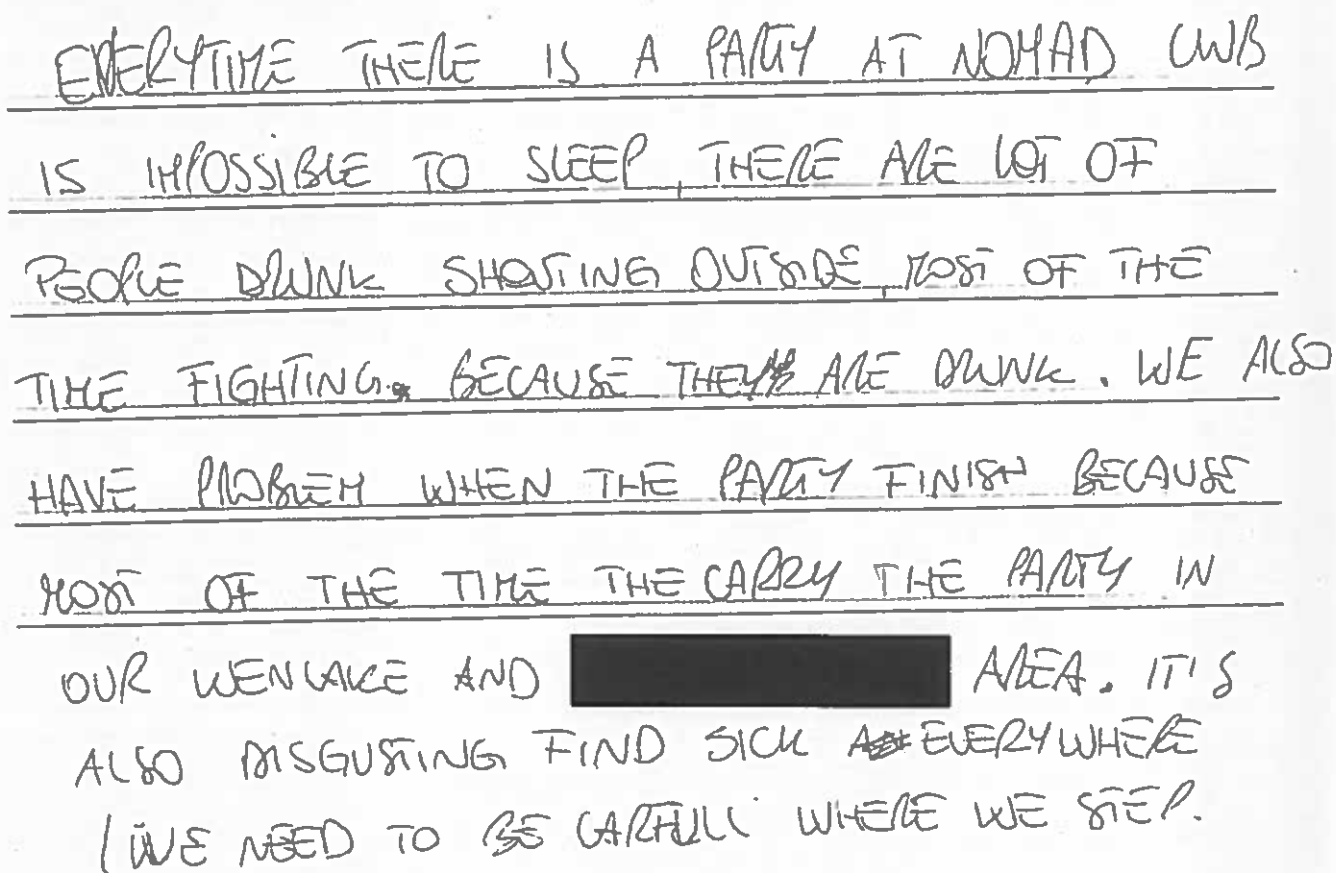 EVERYTIME THERE IS A PARTY AT NOMAD CLUB
IS IMPOSSIBLE TO SLEEP, THERE ARE LOT OF
PEOPLE DRUNK SHOUTING OUTSIDE, MOST OF THE
TIME FIGHTING. BECAUSE THEY ARE DRUNK. WE ALSO
HAVE PROBLEM WHEN THE PARTY FINISH BECAUSE
MOST OF THE TIME THE CARRY THE PARTY IN
OUR WENLAKE AND AREA. IT'S
ALSO DISGUSTING FIND SICK EVERYWHERE
WE NEED TO BE CARFULL WHERE WE STEP.